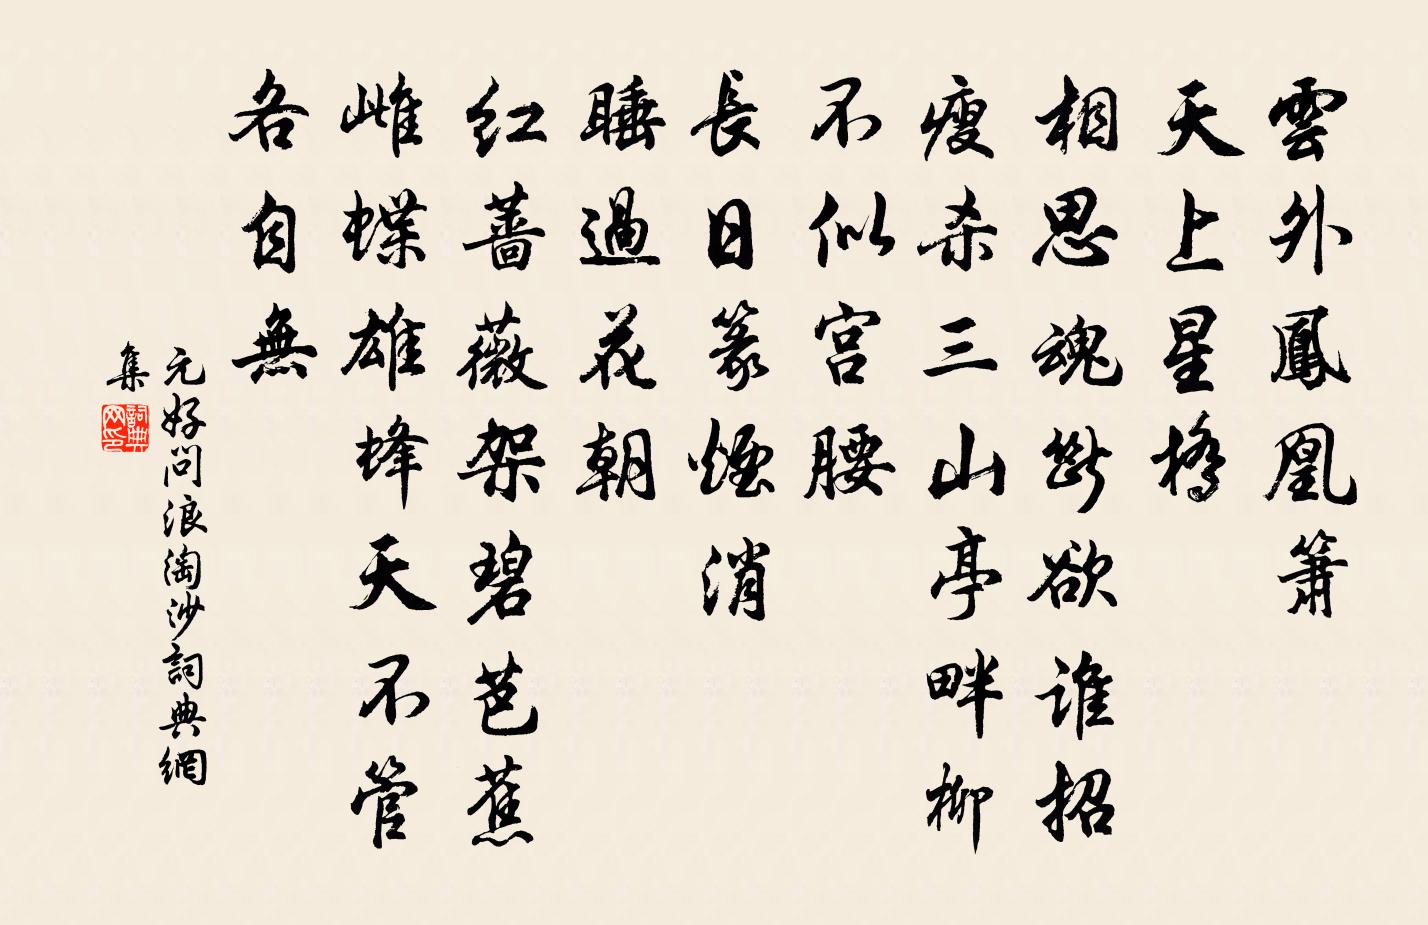 雲外鳳凰簫
天上星橋
相思魂斷欲谁招
瘦杀三山亭畔柳
不似宫腰
長日篆煙消
睡過花朝
红蔷薇架碧芭蕉
雌蝶雄蜂天不管
各自無
元好问浪淘沙詞典網
集
詞典网印